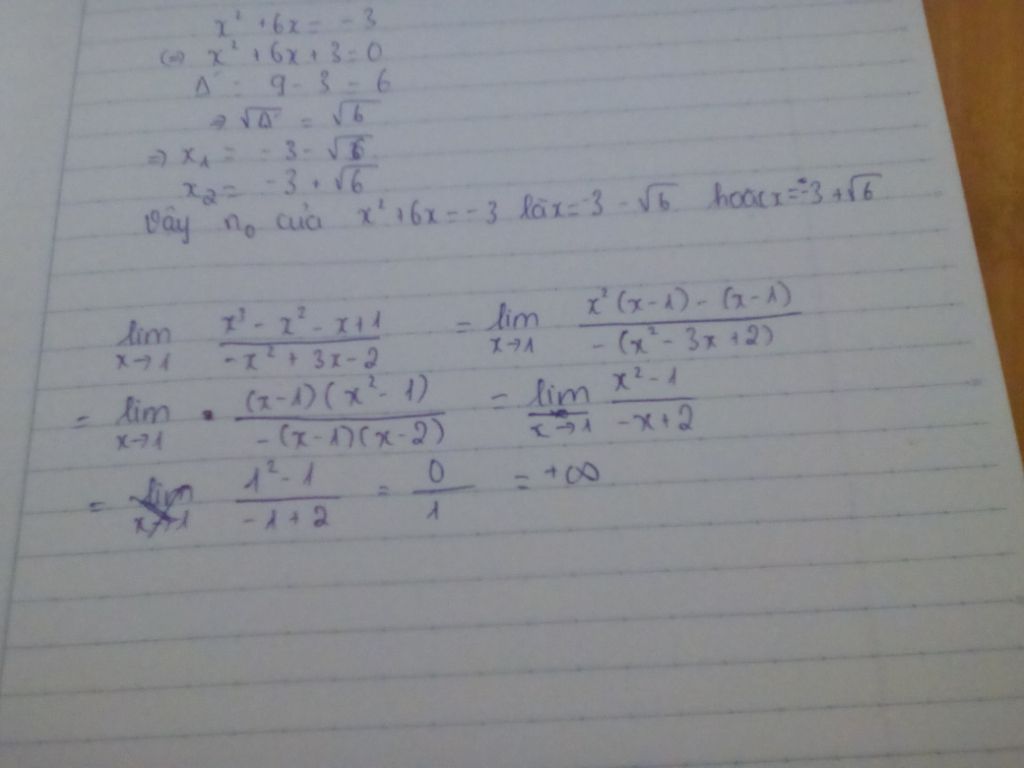 x² + 6x = -3
(=) x² + 6x + 3 = 0
Δ' = 9 - 3 = 6
⇒ √Δ' = √6
⇒ x₁ = -3 - √6
x₂ = -3 + √6
Vậy n₀ của x² + 6x = -3 là x = -3 - √6 hoặc x = -3 + √6
lim x→1 (x³ - x² - x + 1)/(-x² + 3x - 2) = lim x→1 (x²(x-1) - (x-1))/(-(x² - 3x + 2))
= lim x→1 ((x-1)(x² - 1))/(-(x-1)(x-2)) = lim x→1 (x² - 1)/(-x + 2)
= (1² - 1)/(-1 + 2) = 0/1 = +∞